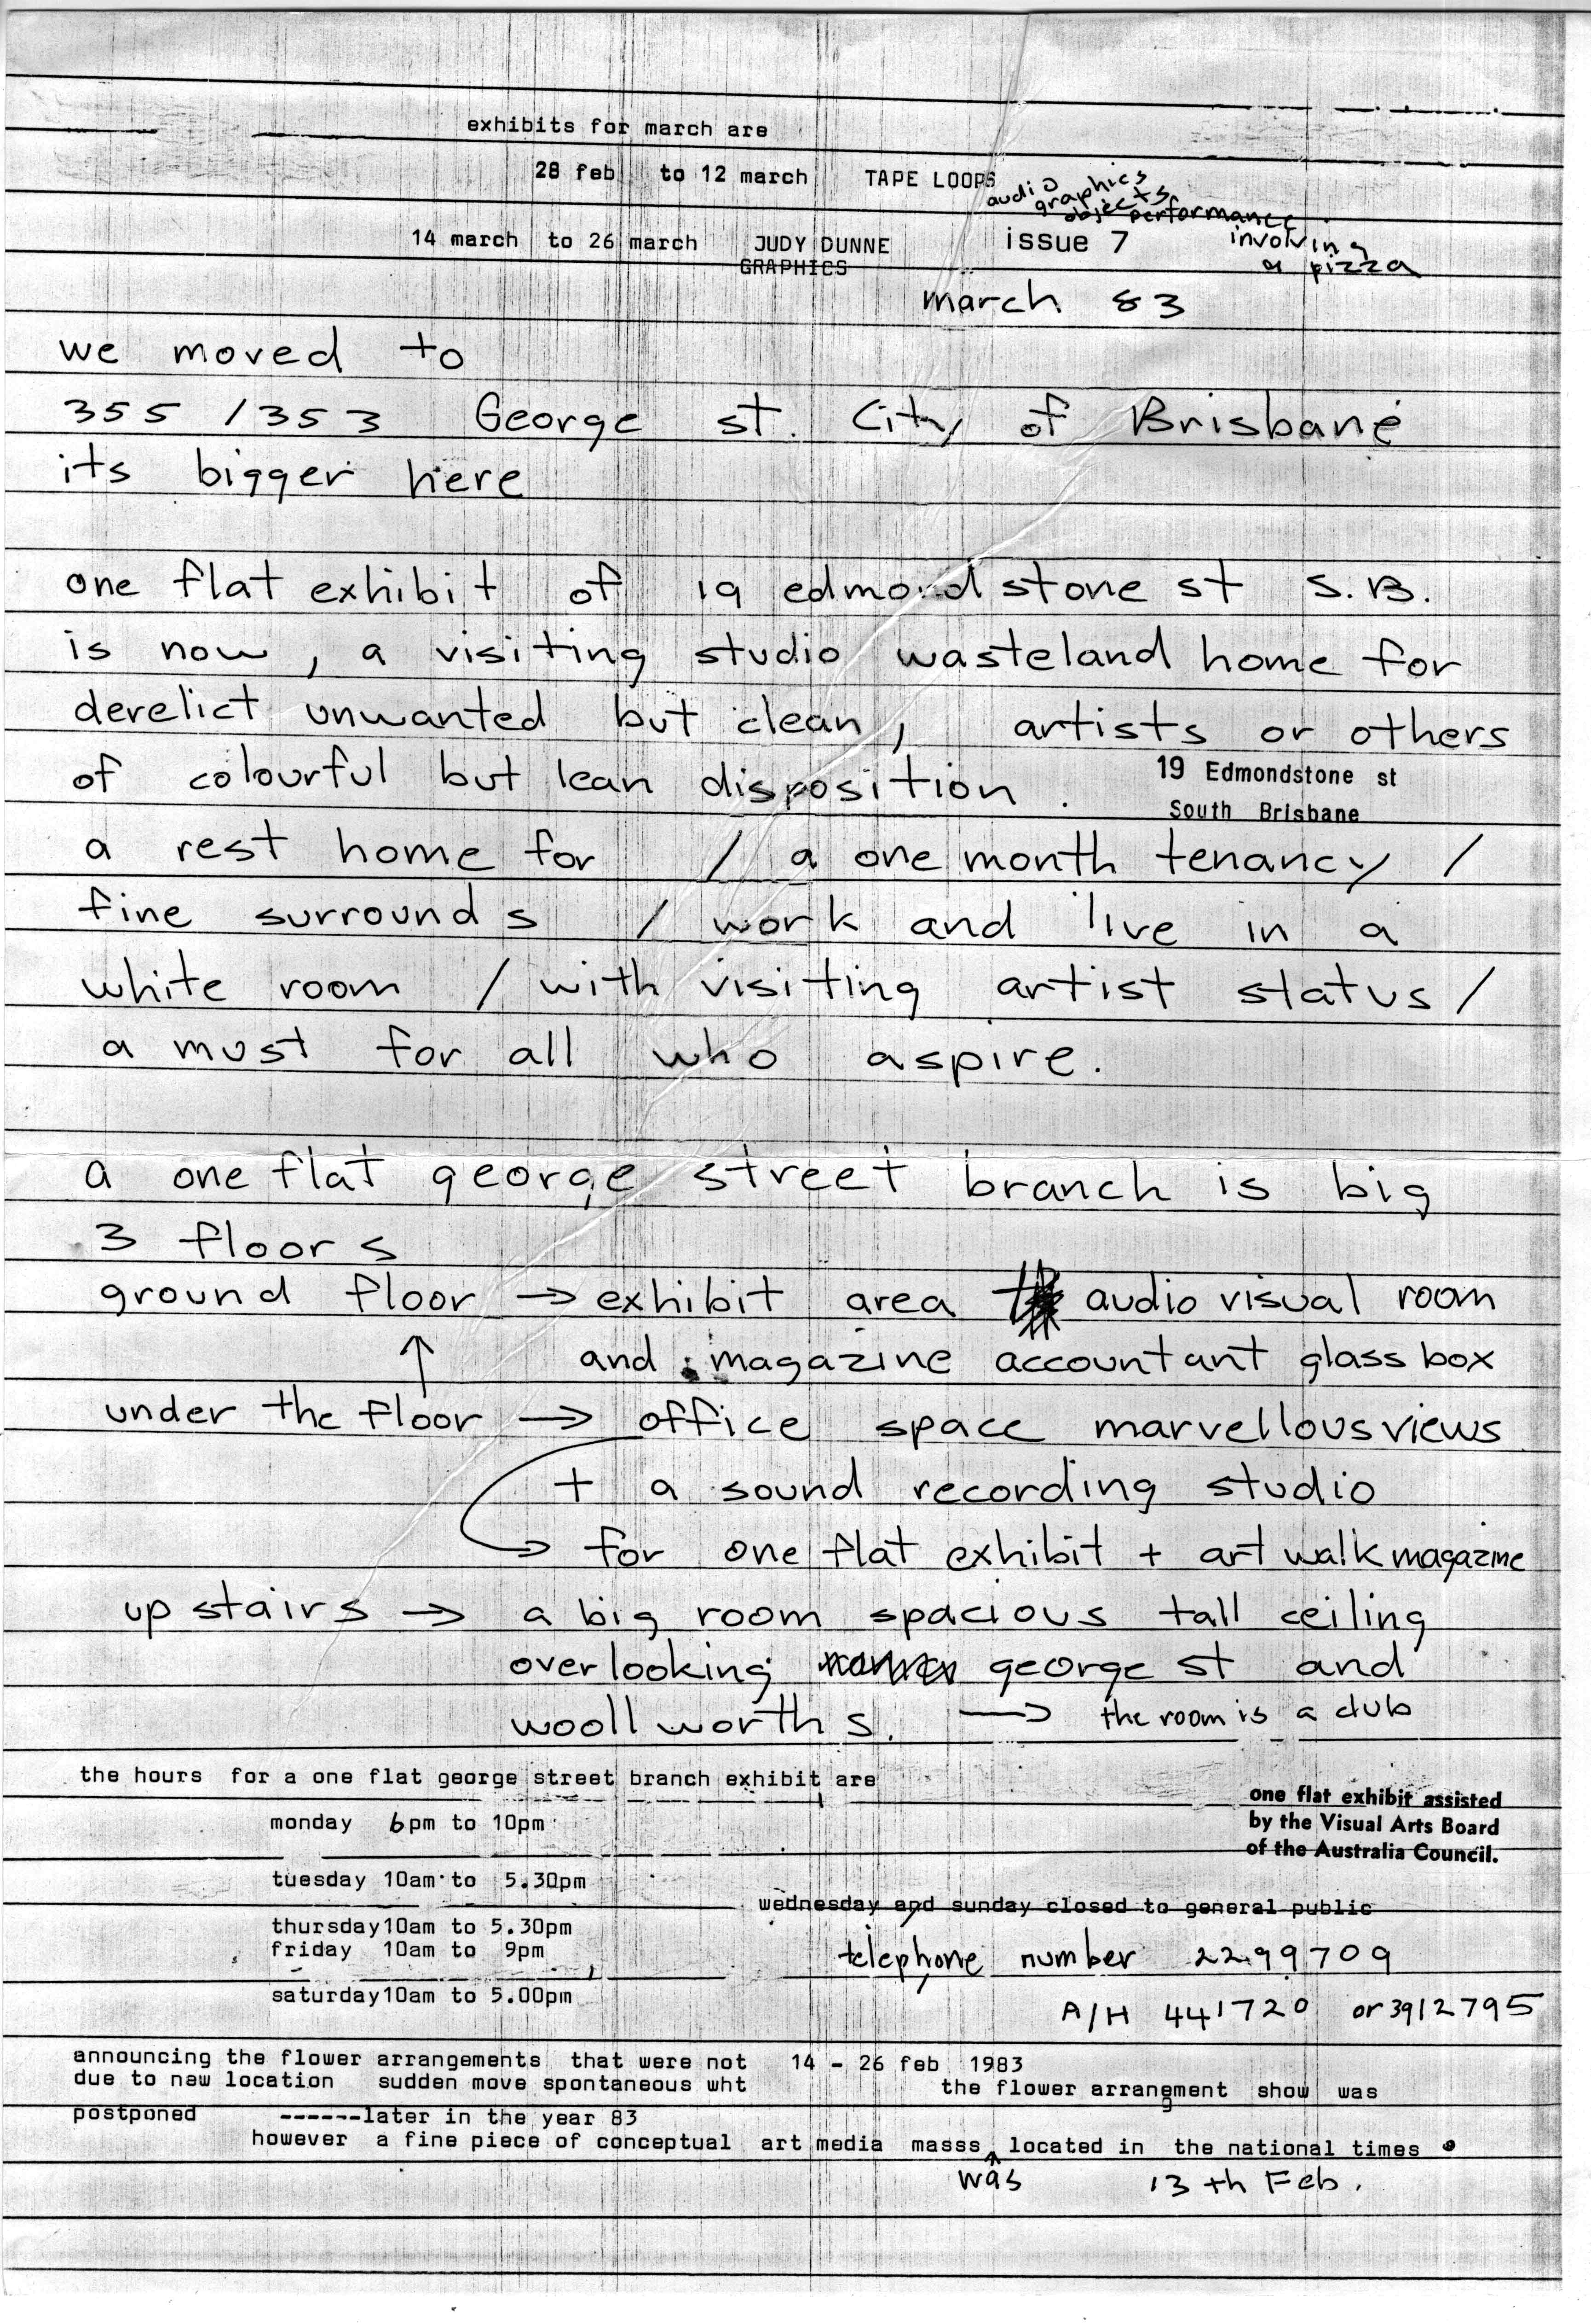 exhibits for march are
28 feb to 12 march TAPE LOOPS audio graphics objects performance involving a pizza
14 march to 26 march JUDY DUNNE GRAPHICS
issue 7
march 83
we moved to
355 / 353 George st. City of Brisbane
its bigger here
one flat exhibit of 19 edmondstone st S.B.
is now, a visiting studio wasteland home for
derelict unwanted but clean, artists or others
of colourful but lean disposition.
19 Edmondstone st
South Brisbane
a rest home for / a one month tenancy /
fine surrounds / work and live in a
white room / with visiting artist status /
a must for all who aspire.
a one flat george street branch is big
3 floors
ground floor → exhibit area audio visual room
↑ and magazine accountant glass box
under the floor → office space marvellous views
+ a sound recording studio
→ for one flat exhibit + art walk magazine
up stairs → a big room spacious tall ceiling
overlooking george st and
woollworths. → the room is a club
the hours for a one flat george street branch exhibit are
monday 6pm to 10pm
tuesday 10am to 5.30pm
thursday 10am to 5.30pm
friday 10am to 9pm
saturday 10am to 5.00pm
one flat exhibit assisted
by the Visual Arts Board
of the Australia Council.
wednesday and sunday closed to general public
telephone number 2299709
A/H 441720 or 3912795
announcing the flower arrangements that were not 14 - 26 feb 1983
due to new location sudden move spontaneous wht the flower arrangement show was
postponed ------later in the year 83
however a fine piece of conceptual art media masss ^ located in the national times
was 13 th Feb.